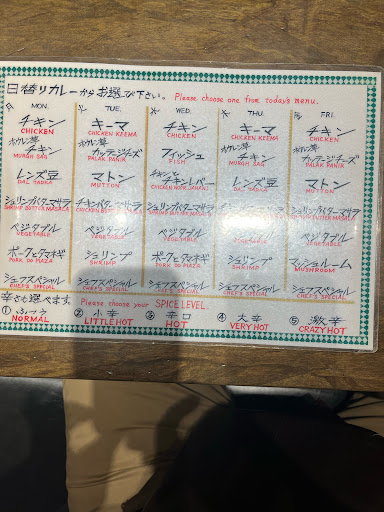 日替りカレーからお選び下さい。 Please choose one from today's menu.
月 MON.
チキン
CHICKEN
ホウレン草
チキン
MURGH SAG
レンズ豆
DAL TADKA
シュリンプバターマサラ
SHRIMP BUTTER MASALA
ベジタブル
VEGETABLE
ポークとタマネギ
PORK DO PIAZA
シェフスペシャル
CHEF'S SPECIAL
火 TUE.
キーマ
CHICKEN KEEMA
ホウレン草
カッテージチーズ
PALAK PANIR
マトン
MUTTON
チキンバターマサラ
CHICKEN BUTTER MASALA
ベジタブル
VEGETABLE
シュリンプ
SHRIMP
シェフスペシャル
CHEF'S SPECIAL
水 WED.
チキン
CHICKEN
フィッシュ
FISH
チキンと
チキンレバー
シュリンプバターマサラ
SHRIMP BUTTER MASALA
ベジタブル
VEGETABLE
ポークとタマネギ
PORK DO PIAZA
シェフスペシャル
CHEF'S SPECIAL
木 THU.
キーマ
CHICKEN KEEMA
ホウレン草
チキン
MURGH SAG
レンズ豆
DAL TADKA
チキンバターマサラ
CHICKEN BUTTER MASALA
ベジタブル
VEGETABLE
シュリンプ
SHRIMP
シェフスペシャル
CHEF'S SPECIAL
金 FRI.
チキン
CHICKEN
ホウレン草
カッテージチーズ
PALAK PANIR
マトン
MUTTON
シュリンプバターマサラ
SHRIMP BUTTER MASALA
ベジタブル
VEGETABLE
マッシュルーム
MUSHROOM
シェフスペシャル
CHEF'S SPECIAL
辛さも選べます。 Please choose your SPICE LEVEL.
① ふつう
NORMAL
② 小辛
LITTLE HOT
③ 辛口
HOT
④ 大辛
VERY HOT
⑤ 激辛
CRAZY HOT